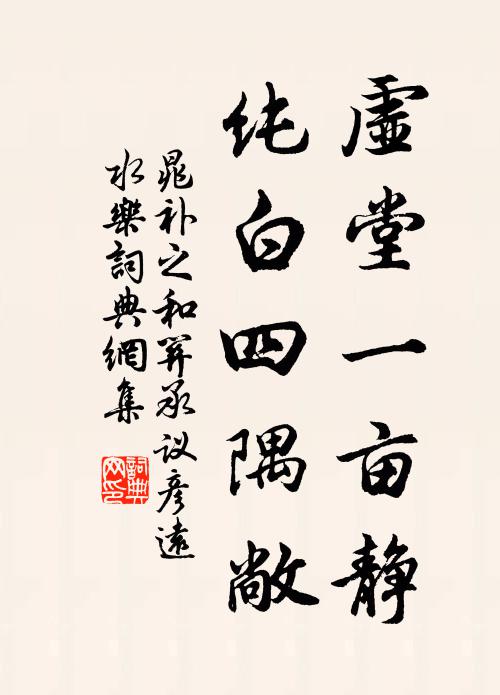 虚堂一亩静
纯白四隅敞
晁补之和关承议彦远
水乐词典网集
词典网印